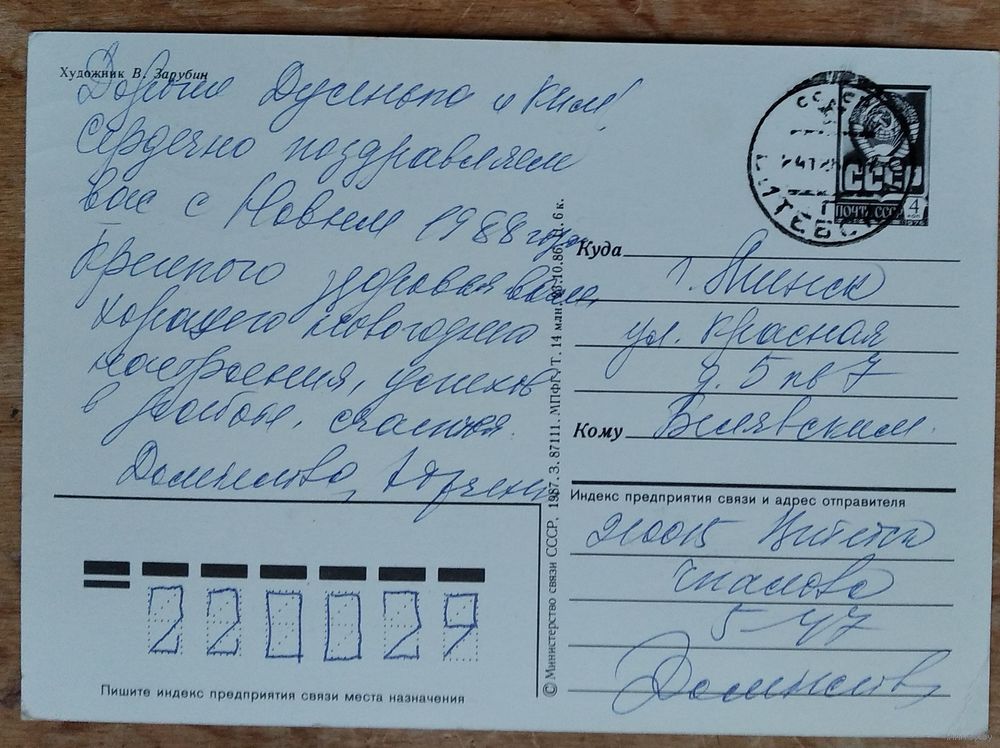 Художник В. Зарубин
Дорогие Дусенька и Ким!
Сердечно поздравляем
вас с Новым 1988 годом
Крепкого здоровья вам,
хорошего новогоднего
настроения, успехов
в работе, счастья.
СССР
ВИТЕБСК
СССР
ПОЧТА СССР
4
коп
1976
Куда
г. Минск
ул. Красная
д. 5 кв 7
Кому
Белявским.
Индекс предприятия связи и адрес отправителя
210015 Витебск
Чкалова
5-47
220029
Пишите индекс предприятия связи места назначения
© Министерство связи СССР. 1987. З. 87111. МПФГ. Т. 14 млн. 6 к.